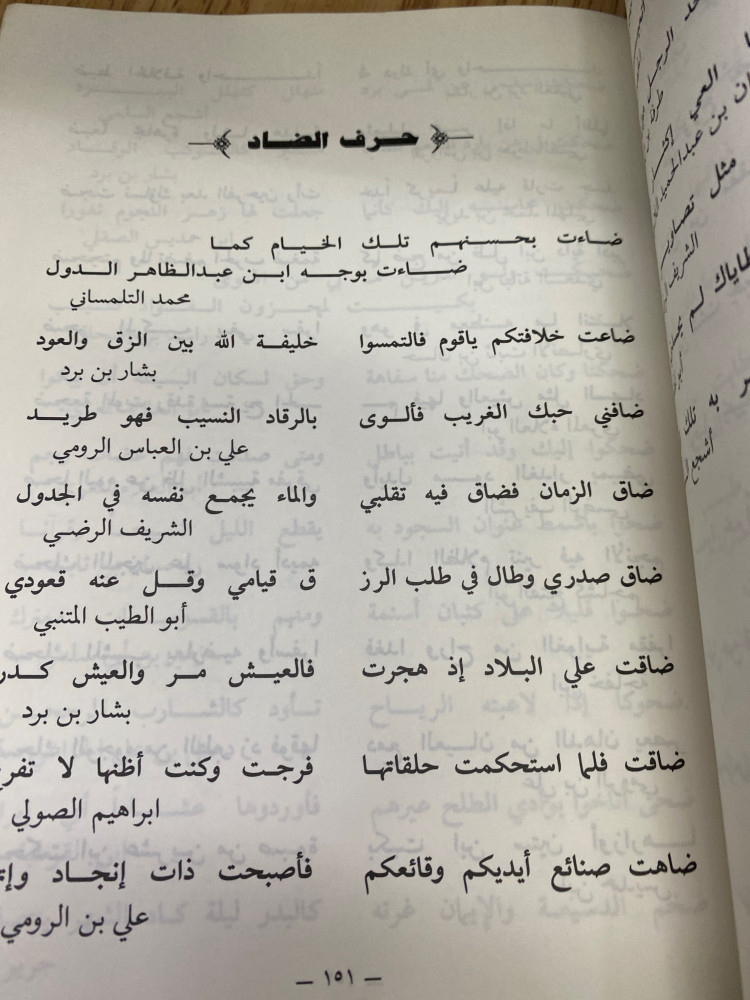 حرف الضاد
ضاءت بحسنهم تلك الخيام كما
ضاءت بوجه ابن عبدالظاهر الدول
محمد التلمساني
ضاعت خلافتكم ياقوم فالتمسوا خليفة الله بين الزق والعود
بشار بن برد
ضافني حبك الغريب فألوى بالرقاد النسيب فهو طريد
علي بن العباس الرومي
ضاق الزمان فضاق فيه تقلبي والماء يجمع نفسه في الجدول
الشريف الرضي
ضاق صدري وطال في طلب الرز ق قيامي وقل عنه قعودي
أبو الطيب المتنبي
ضاقت علي البلاد إذ هجرت فالعيش مر والعيش كدر
بشار بن برد
ضاقت فلما استحكمت حلقاتها فرجت وكنت أظنها لا
ابراهيم الصولي
ضاهت صنائع أيديكم وقائعكم فأصبحت ذات إنجاد
علي بن الرومي
– ١٥١ –